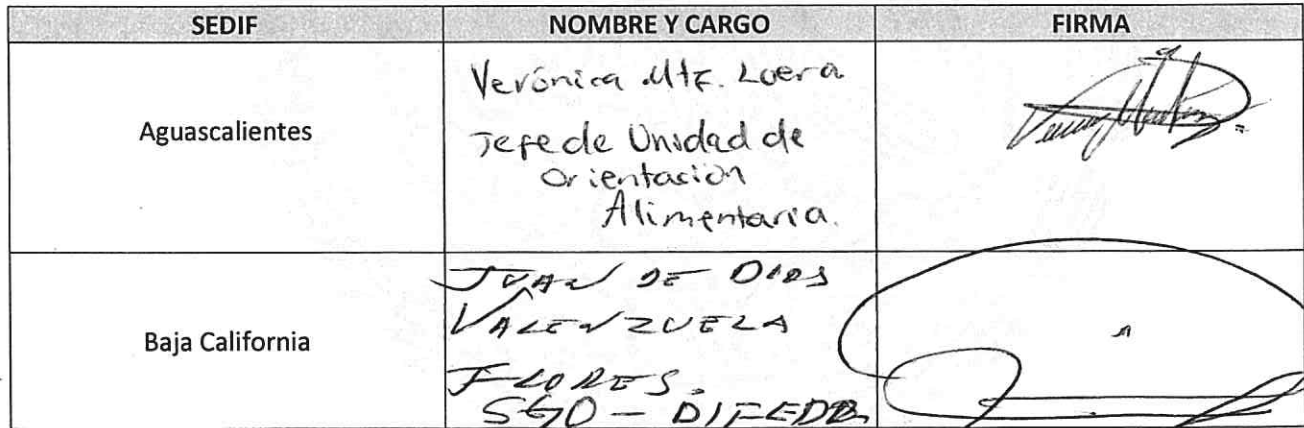 SEDIF NOMBRE Y CARGO FIRMA
Aguascalientes
Verónica Mtz. Loera
Jefe de Unidad de
Orientación
Alimentaria.
Baja California
JUAN DE DIOS
VALENZUELA
FLORES.